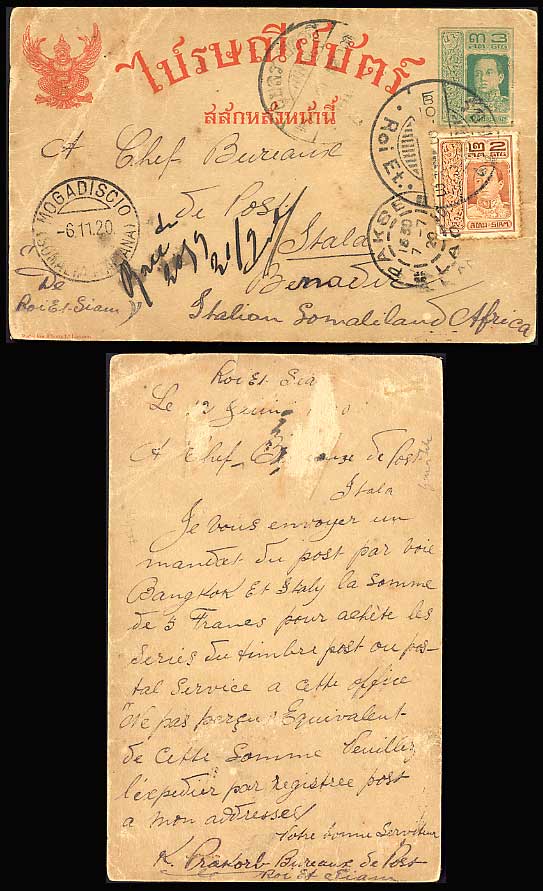 ไปรษณียบัตร
สลักหลังหน้านี้
๓ ๓
๒ ๒
สยาม-SIAM
Roi-Et
MOGADISCIO
-6.11.20
PAKSE
16 30
7-7
20
LAOS
A Chef Bureaux
de Post
Itala
Benadir
Italian Somaliland Africa
De
Roi Et-Siam
Roi Et Sia
Le 12
A Chef de Post
Itala
Je vous envoyer un
mandat du post par voie
Bangkok Et Italy la somme
de 5 Francs pour achète les
Series du timbre post ou pos-
tal Service a cette office
Ne pas perçu Equivalent
de cette Somme Veuillez
l'expedier par registree post
a mon addresse
Votre bonne Serviteur
K. Prakorb Bureaux de Post
Roi Et Siam